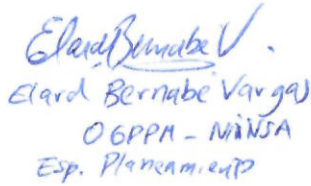 Elard Bernabe V.
Elard Bernabé Vargas
OGPPM - MINSA
Esp. Planeamiento